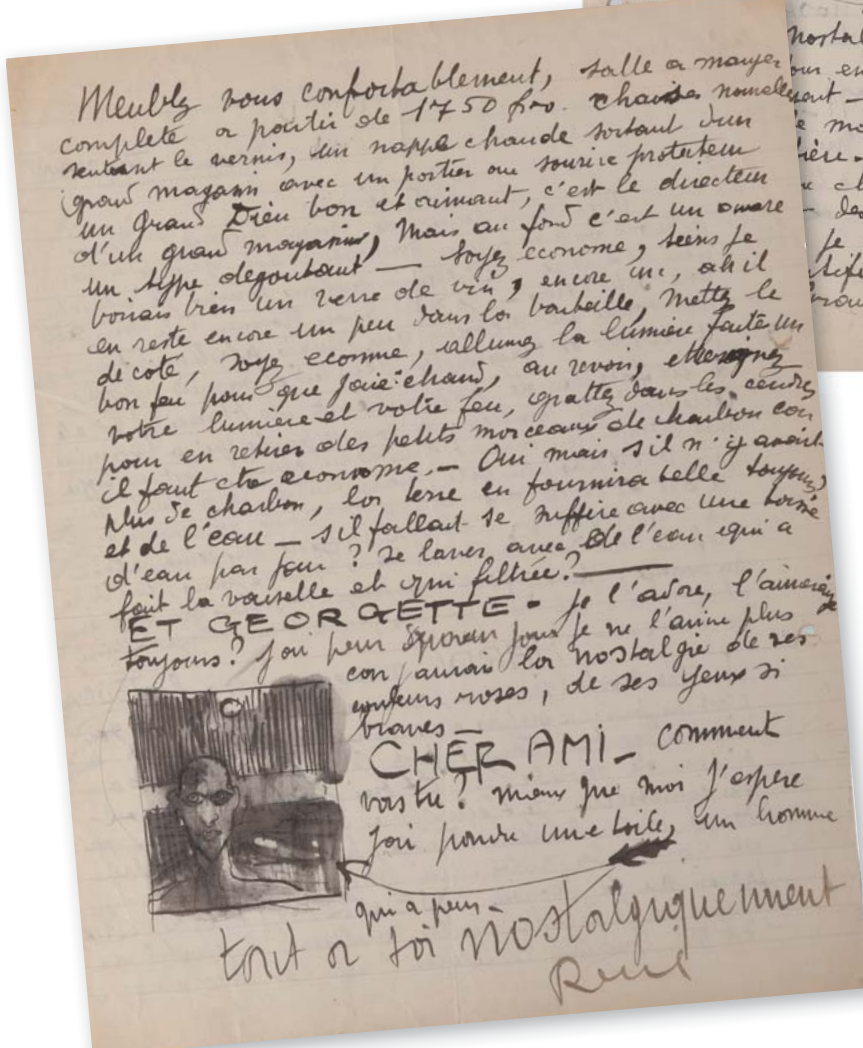 Meublez vous confortablement, salle a manger
complete a partir de 1750 frs. chaises nouvelles
sentant le vernis, un nappe chaude sortant d'un
grand magasin avec un portier au sourire protecteur
un Grand Dieu bon et aimant, c'est le directeur
d'un grand magasin, Mais au fond c'est un avare
un type degoutant — soyez econome, tiens je
boirais bien un verre de vin, encore un, ah il
en reste encore un peu dans la bouteille, mettez le
de coté, soyez econome, allumez la lumière faite un
bon feu pour que j'aie chaud, au revoir, eteignez
votre lumiere et votre feu, grattez dans les cendres
pour en retirer des petits morceaux de charbon car
il faut etre econome. — Oui mais s'il n'y avait
plus de charbon, la terre en fournira telle toujours,
et de l'eau — s'il fallait se suffire avec une
d'eau par jour ? se laver avec de l'eau qui a
fait la vaisselle et qui filtrée? —
ET GEORGETTE - je l'adore, l'aimerai je
toujours? j'ai peur qu'un jour je ne l'aime plus
car j'aurai la nostalgie de ses
couleurs roses, de ses yeux si
braves —
CHER AMI — comment
vas tu? mieux que moi j'espere
j'ai pondu une toile, un homme
qui a peur —
tout a toi nostalgiquement
René